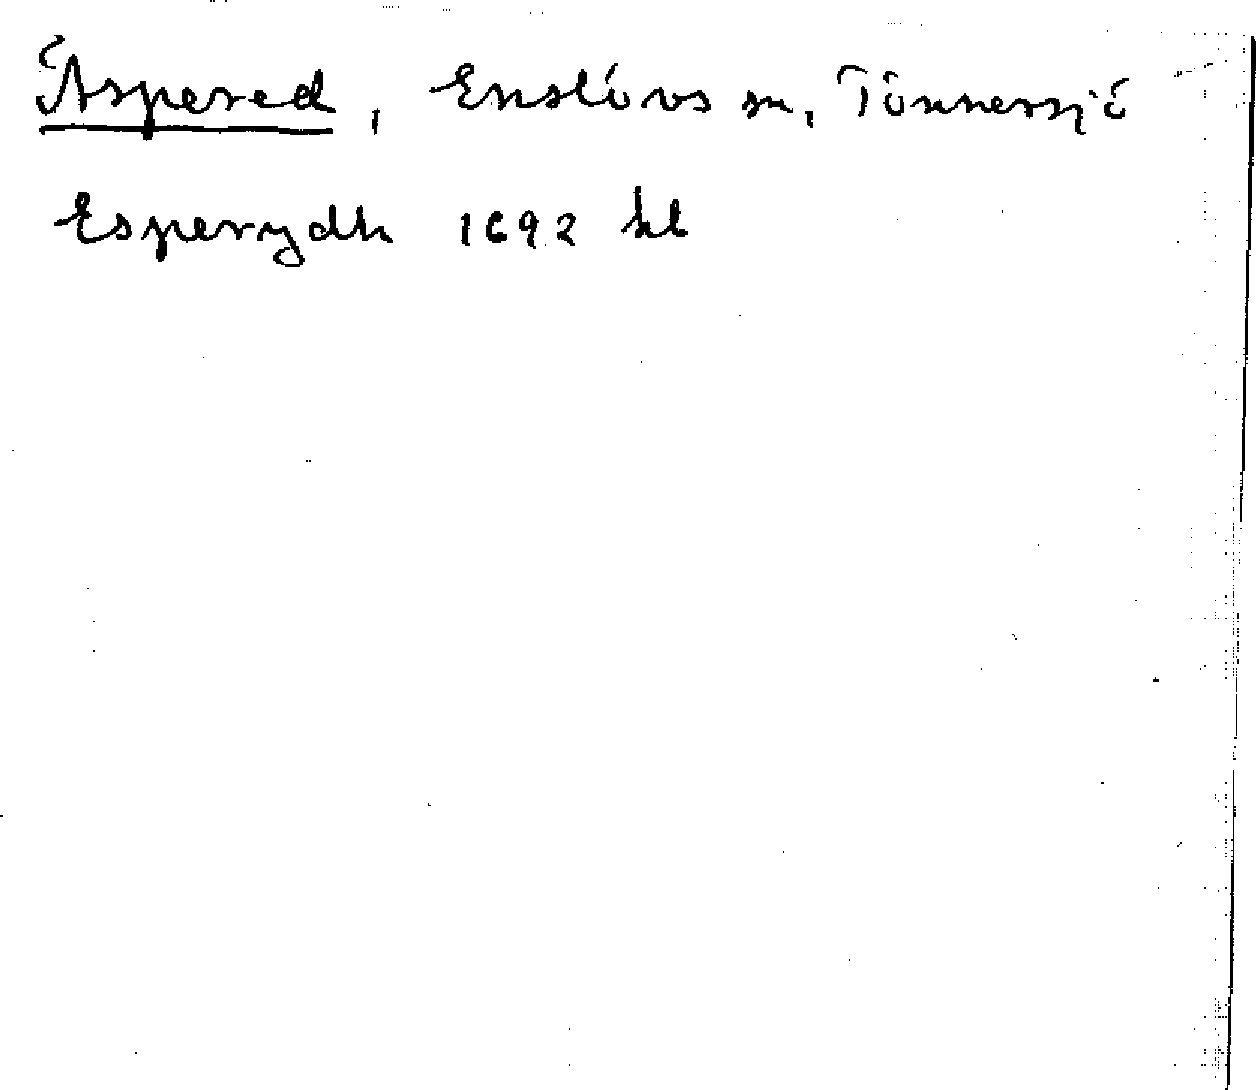 Äspered, Enslövs sn, Tönnersjö
Esperydh 1692 kb